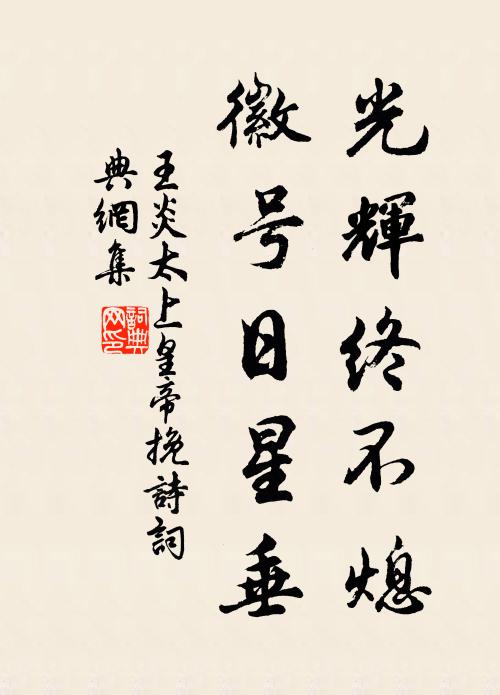 光輝終不熄
徽号日星垂
王炎太上皇帝挽詩詞
典網集
詞典
网印